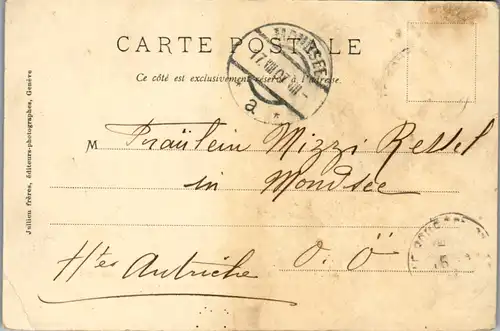 CARTE POSTALE
Ce côté est exclusivement réservé à l'adresse.
MONDSEE
17.VIII.07
a
M Fräulein Mizzi Ressel
in Mondsee
O. Ö
Htes Autriche
Jullien frères, éditeurs-photographes, Genève